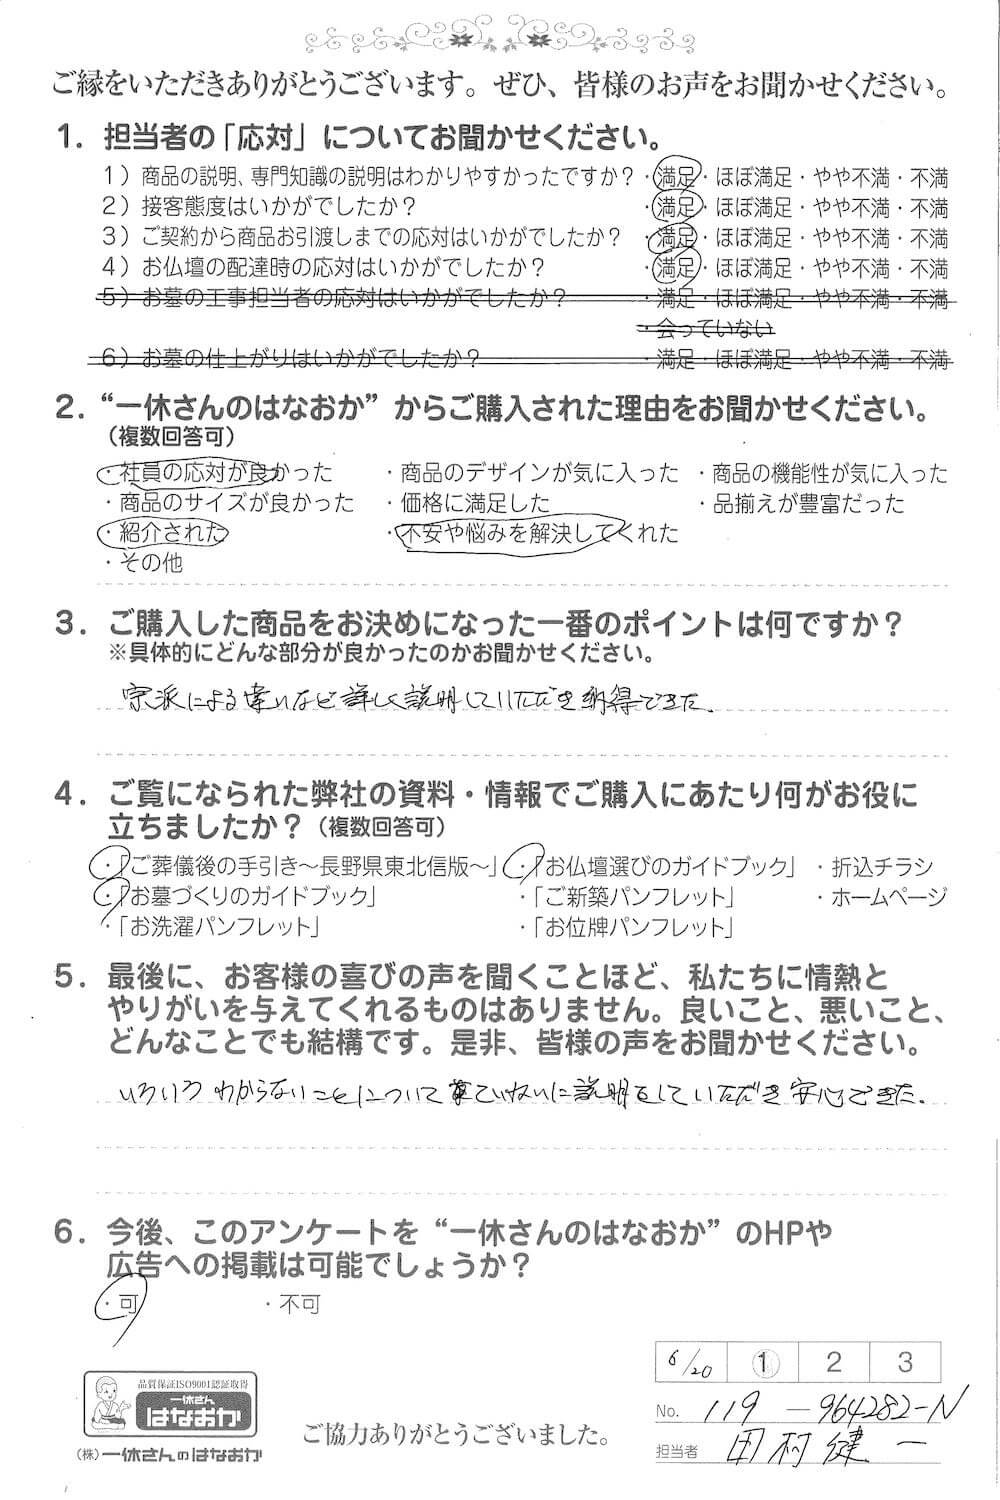 ご縁をいただきありがとうございます。ぜひ、皆様のお声をお聞かせください。
1. 担当者の「応対」についてお聞かせください。
1）商品の説明、専門知識の説明はわかりやすかったですか？ ・満足・ほぼ満足・やや不満・不満
2）接客態度はいかがでしたか？ ・満足・ほぼ満足・やや不満・不満
3）ご契約から商品お引渡しまでの応対はいかがでしたか？ ・満足・ほぼ満足・やや不満・不満
4）お仏壇の配達時の応対はいかがでしたか？ ・満足・ほぼ満足・やや不満・不満
5）お墓の工事担当者の応対はいかがでしたか？ ・満足・ほぼ満足・やや不満・不満
・会っていない
6）お墓の仕上がりはいかがでしたか？ ・満足・ほぼ満足・やや不満・不満
2. “一休さんのはなおか”からご購入された理由をお聞かせください。
（複数回答可）
・社員の応対が良かった ・商品のデザインが気に入った ・商品の機能性が気に入った
・商品のサイズが良かった ・価格に満足した ・品揃えが豊富だった
・紹介された ・不安や悩みを解決してくれた
・その他
3. ご購入した商品をお決めになった一番のポイントは何ですか？
※具体的にどんな部分が良かったのかお聞かせください。
宗派による違いなど詳しく説明していただき納得できた。
4. ご覧になられた弊社の資料・情報でご購入にあたり何がお役に
立ちましたか？（複数回答可）
・「ご葬儀後の手引き～長野県東北信版～」 ・「お仏壇選びのガイドブック」 ・折込チラシ
・「お墓づくりのガイドブック」 ・「ご新築パンフレット」 ・ホームページ
・「お洗濯パンフレット」 ・「お位牌パンフレット」
5. 最後に、お客様の喜びの声を聞くことほど、私たちに情熱と
やりがいを与えてくれるものはありません。良いこと、悪いこと、
どんなことでも結構です。是非、皆様の声をお聞かせください。
いろいろわからないことについてていねいに説明をしていただき安心できた。
6. 今後、このアンケートを“一休さんのはなおか”のHPや
広告への掲載は可能でしょうか？
・可 ・不可
6/20 1 2 3
No. 119-964282-N
担当者 田村健一
品質保証ISO9001認証取得
一休さん
はなおか
（株）一休さんのはなおか
ご協力ありがとうございました。